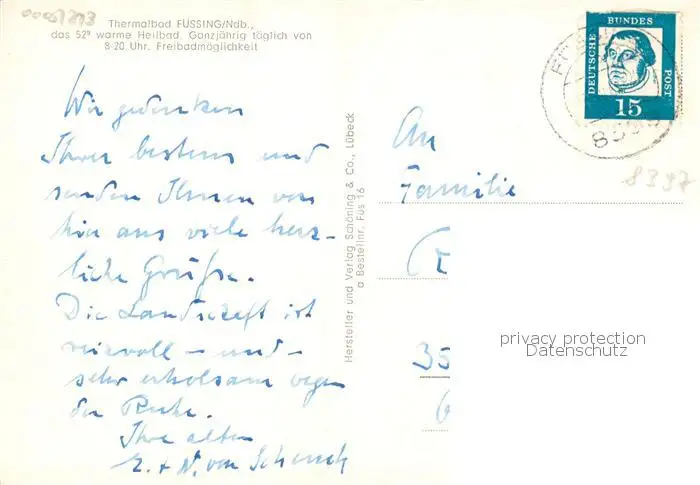 Thermalbad FÜSSING/Ndb.,
das 52° warme Heilbad. Ganzjährig täglich von
8-20 Uhr. Freibadmöglichkeit
Wir gedenken
Ihrer bestens und
senden Ihnen von
hier aus viele herz-
liche Grüße.
Die Landschaft ist
reizvoll - und -
sehr erholsam wegen
der Ruhe.
Ihre alten
E. + W. von Schenck
Hersteller und Verlag Schöning & Co., Lübeck
a Bestellnr. Füs 16
DEUTSCHE BUNDES POST
15
An
Familie
35
8397
privacy protection
Datenschutz